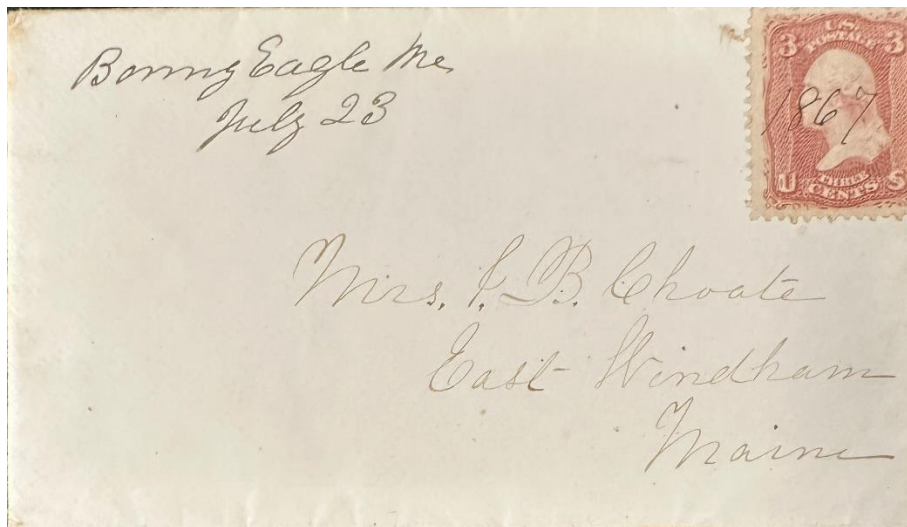 Bonny Eagle Me.
July 23
3 U.S. 3
POSTAGE
1867
THREE
U CENTS S
Mrs. I. B. Choate
East Windham
Maine